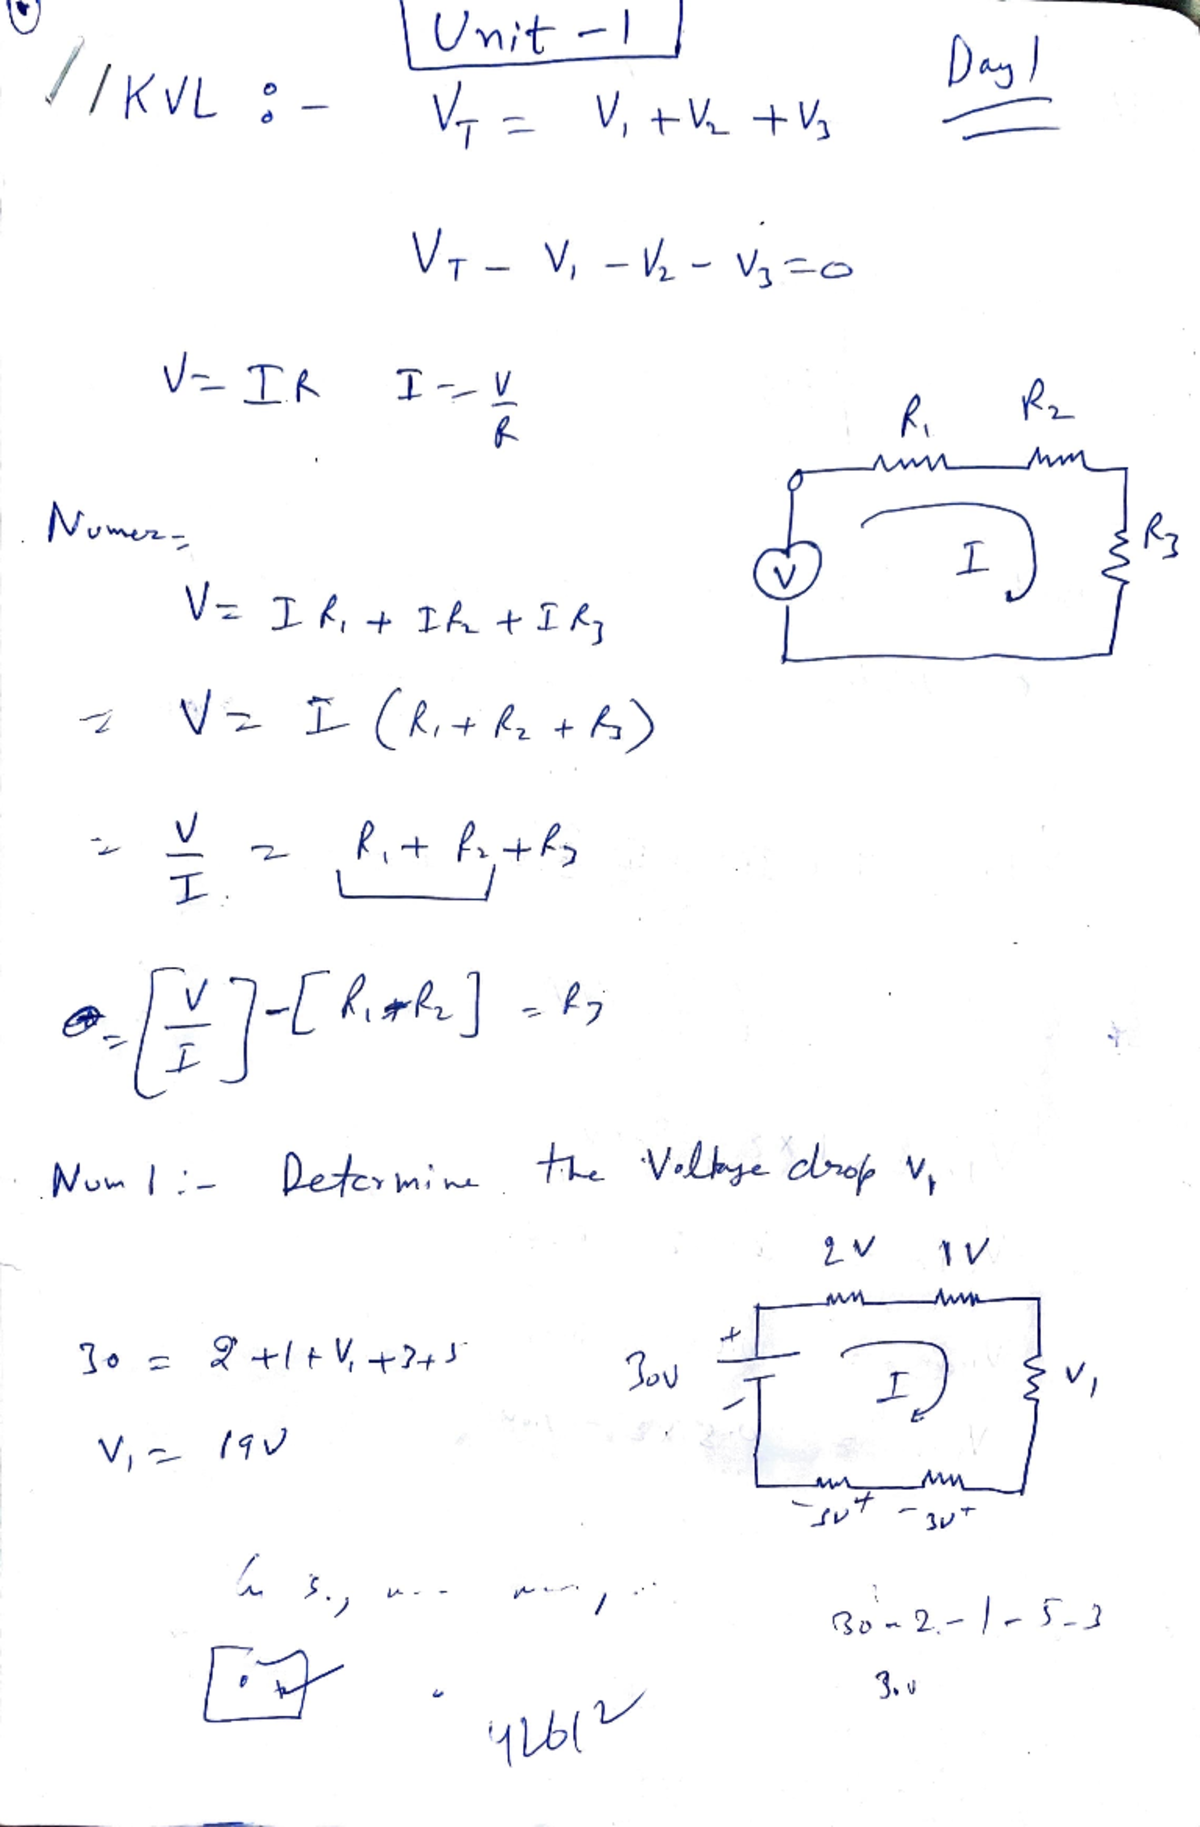 Unit - 1
Day 1
// KVL :- V_T = V_1 + V_2 + V_3
V_T - V_1 - V_2 - V_3 = 0
V = IR I = V/R
R_1 R_2
R_3
V
I
Numer =
V = IR_1 + IR_2 + IR_3
= V = I (R_1 + R_2 + R_3)
= V/I = R_1 + R_2 + R_3
= [V/I] - [R_1 + R_2] = R_3
Num 1 :- Determine the Voltage drop V_1
2V 1V
30 = 2 + 1 + V_1 + 3 + 5
30V + - I V_1
V_1 = 19V
- 5V + - 3V +
30 - 2 - 1 - 5 - 3